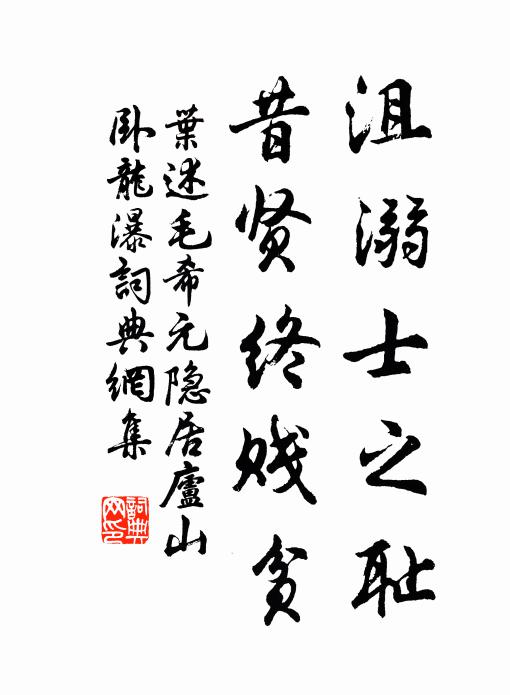 沮溺士之耻
昔贤终贱贫
葉述毛希元隐居廬山
卧龍瀑詞典網集
詞典網印